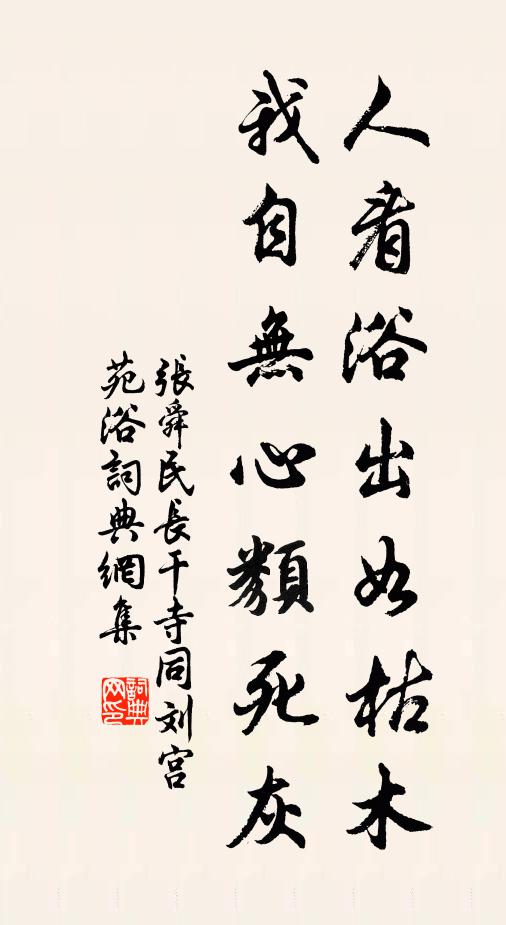 人看浴出如枯木
我自無心類死灰
張舜民長干寺同刘宫
苑浴詞典網集
詞典網印